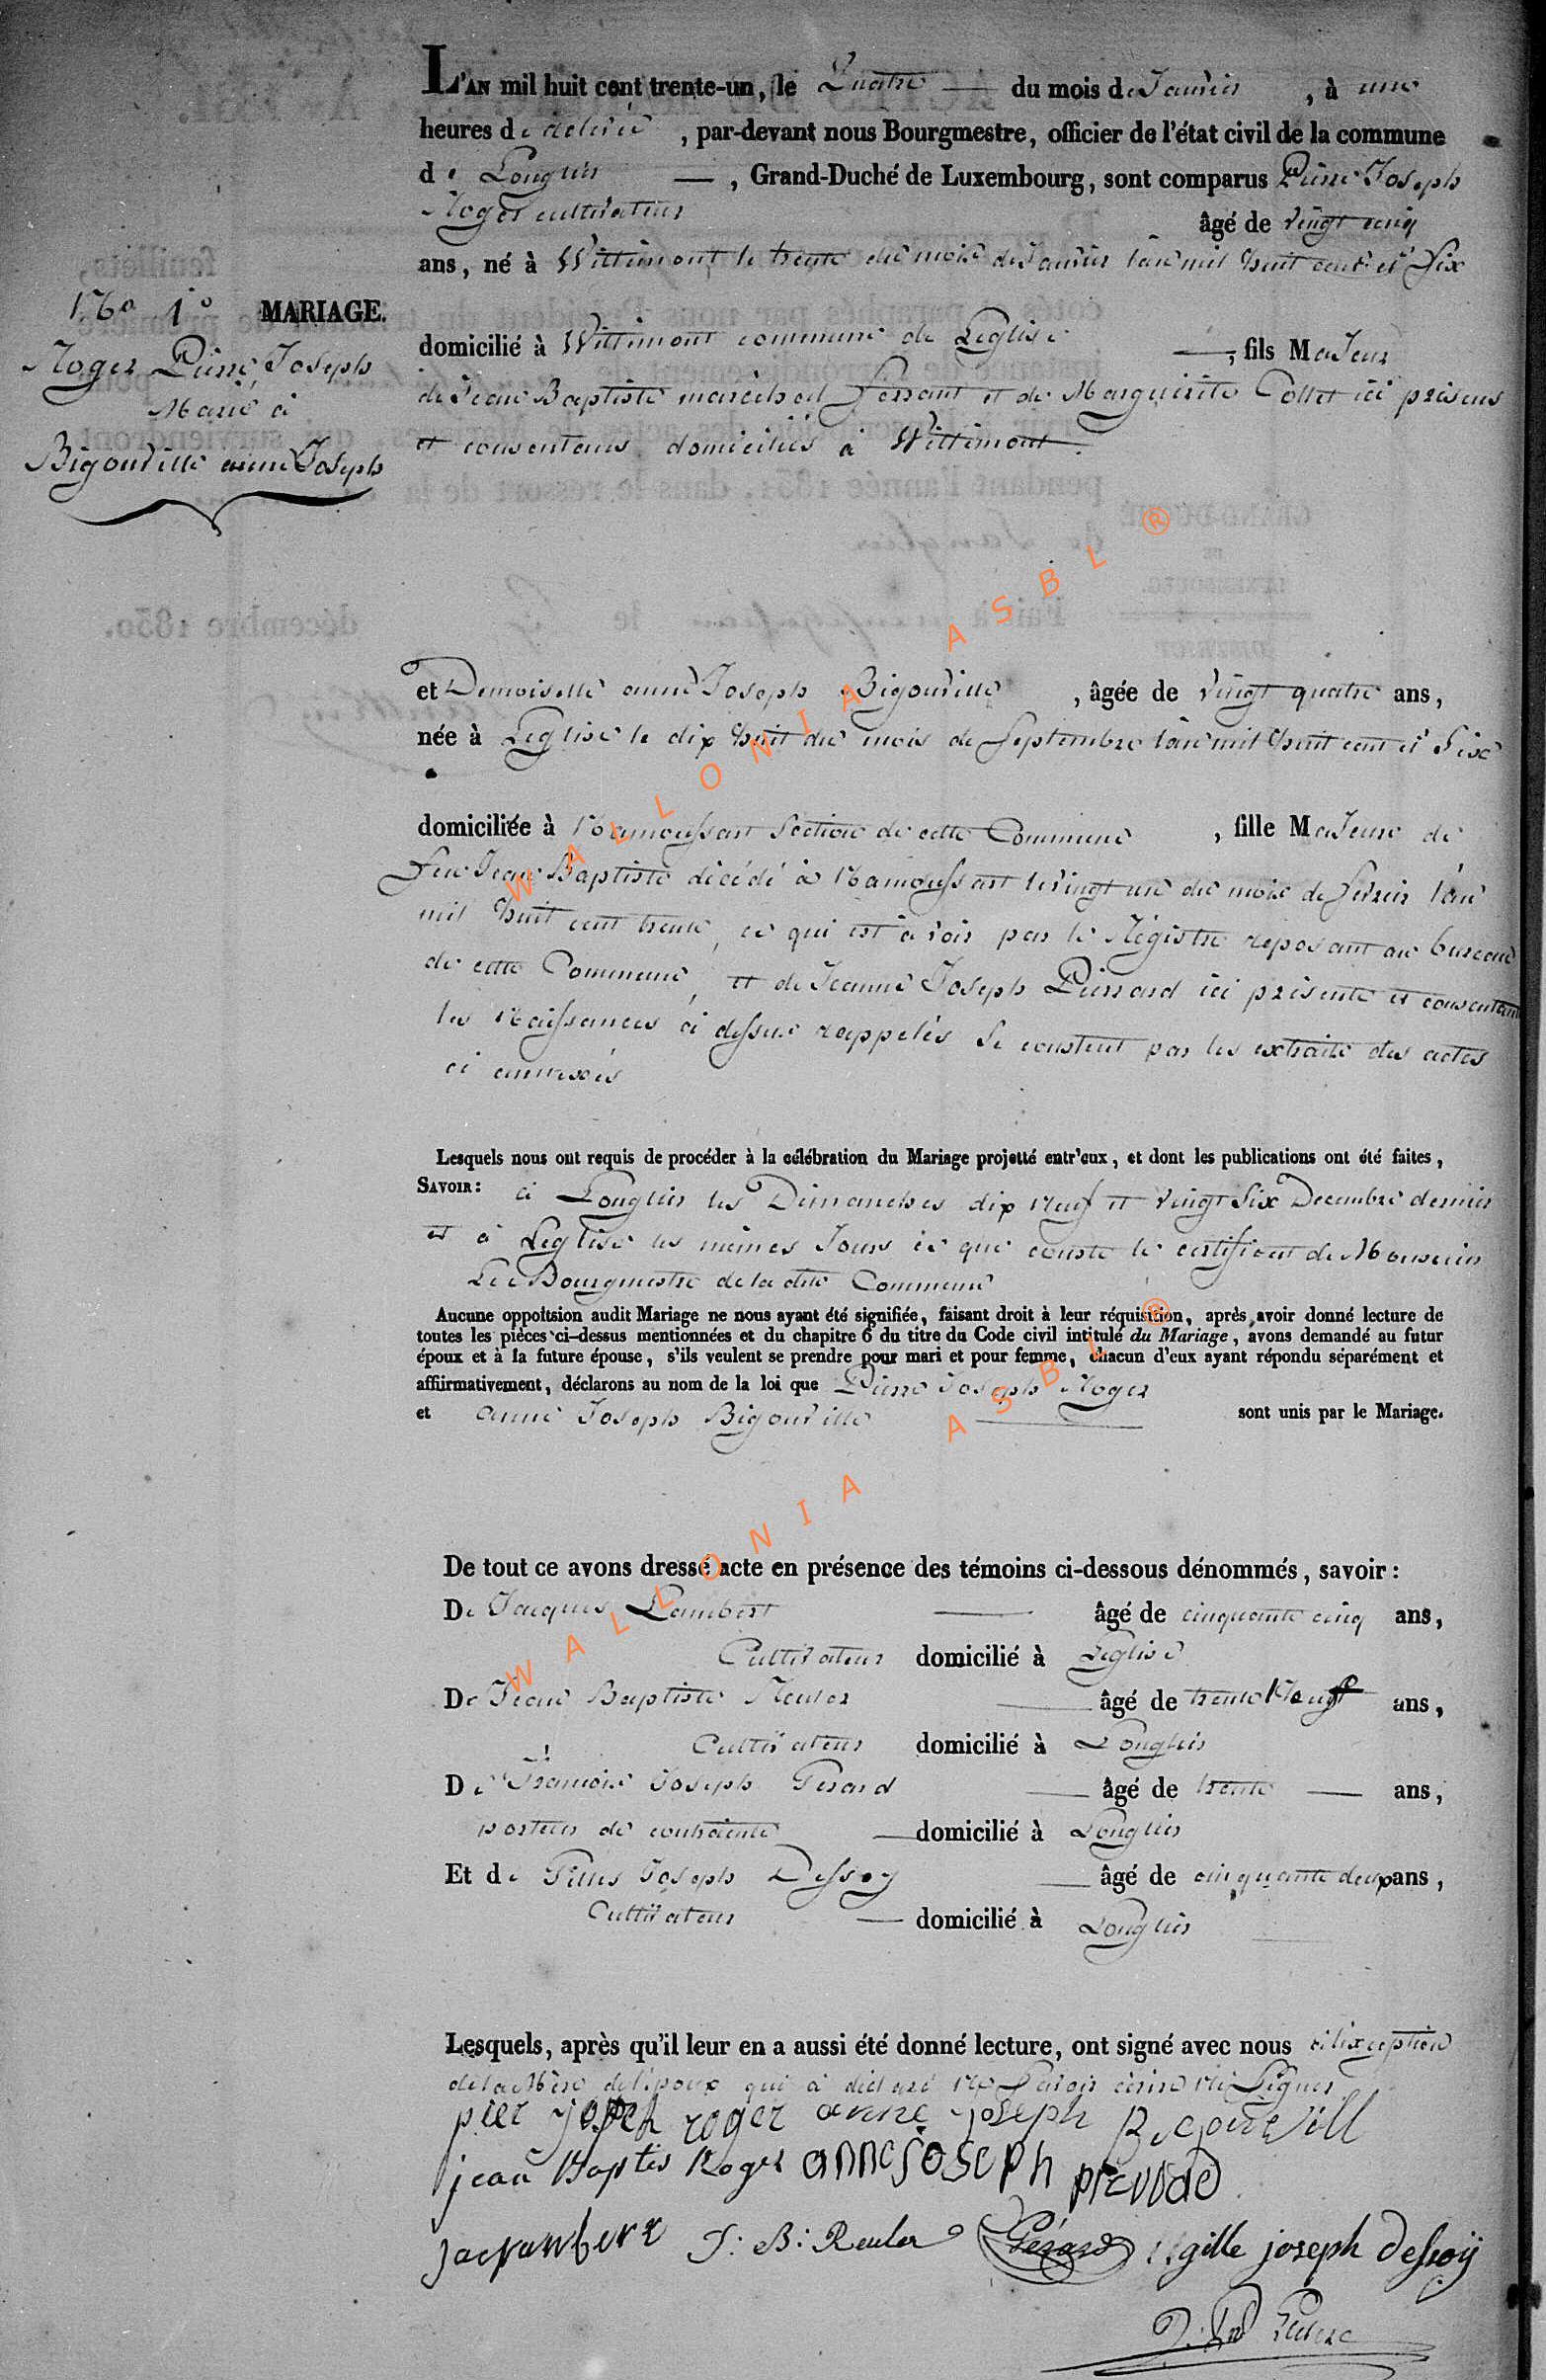 L'AN mil huit cent trente-un, le Quatre du mois de Janvier, à une
heures de relevée, par-devant nous Bourgmestre, officier de l'état civil de la commune
de Longlier, Grand-Duché de Luxembourg, sont comparus Pierre Joseph
Roger cultivateur âgé de vingt cinq
ans, né à Wittimont le trente du mois de Janvier l'an mil huit cent et six
No 1o MARIAGE.
Roger Pierre Joseph
Marié à
Bigonville anne Joseph
domicilié à Wittimont commune de Leglise, fils MaJeur
de Jean Baptiste maréchal ferrant et de Marguerite Collet ici présens
et consentans domiciliés à Wittimont.
et Demoiselle anne Joseph Bigonville, âgée de vingt quatre ans,
née à Leglise le dix huit du mois de septembre l'an mil huit cent et six
domiciliée à Namoussart section de cette Commune, fille MaJeure de
feu Jean Baptiste décédé à Namoussart le vingt un du mois de fevrier l'an
mil huit cent trente, ce qui est à voir par le Régistre reposant au bureau
de cette Commune, et de Jeanne Joseph Pierrard ici présente et consentante
les Naissances ci dessus rappelés se constent par les extraits des actes
ci annexés
Lesquels nous ont requis de procéder à la célébration du Mariage projetté entr'eux, et dont les publications ont été faites,
SAVOIR: à Longlier les Dimanches dix neuf et vingt six Decembre dernier
et à Leglise les mêmes Jours ce que conste le certificat de Monsieur
Le Bourgmestre de la dite Commune
Aucune oppoitsion audit Mariage ne nous ayant été signifiée, faisant droit à leur réquisition, après avoir donné lecture de
toutes les pièces ci-dessus mentionnées et du chapitre 6 du titre du Code civil intitulé du Mariage, avons demandé au futur
époux et à la future épouse, s'ils veulent se prendre pour mari et pour femme, chacun d'eux ayant répondu séparément et
affiirmativement, déclarons au nom de la loi que Pierre Joseph Roger
et anne Joseph Bigonville sont unis par le Mariage.
De tout ce avons dressé acte en présence des témoins ci-dessous dénommés, savoir:
De Jacques Lambert âgé de cinquante cinq ans,
Cultivateur domicilié à Leglise
De Jean Baptiste Reuler âgé de trente Neuf ans,
Cultivateur domicilié à Longlier
De François Joseph Gerard âgé de trente ans,
porteur de contrainte domicilié à Longlier
Et de Gilles Joseph Dessoy âgé de cinquante deux ans,
Cultivateur domicilié à Longlier
Lesquels, après qu'il leur en a aussi été donné lecture, ont signé avec nous à l'exception
de la Mère de l'époux qui a déclaré ne savoir écrire ni signer
pier joseph roger anne joseph Bigonvill
jean Baptis Roger anne joseph pierard
J: B: Reuler Gérard gille joseph dessoÿ
WALLONIA ASBL ®
WALLONIA ASBL ®